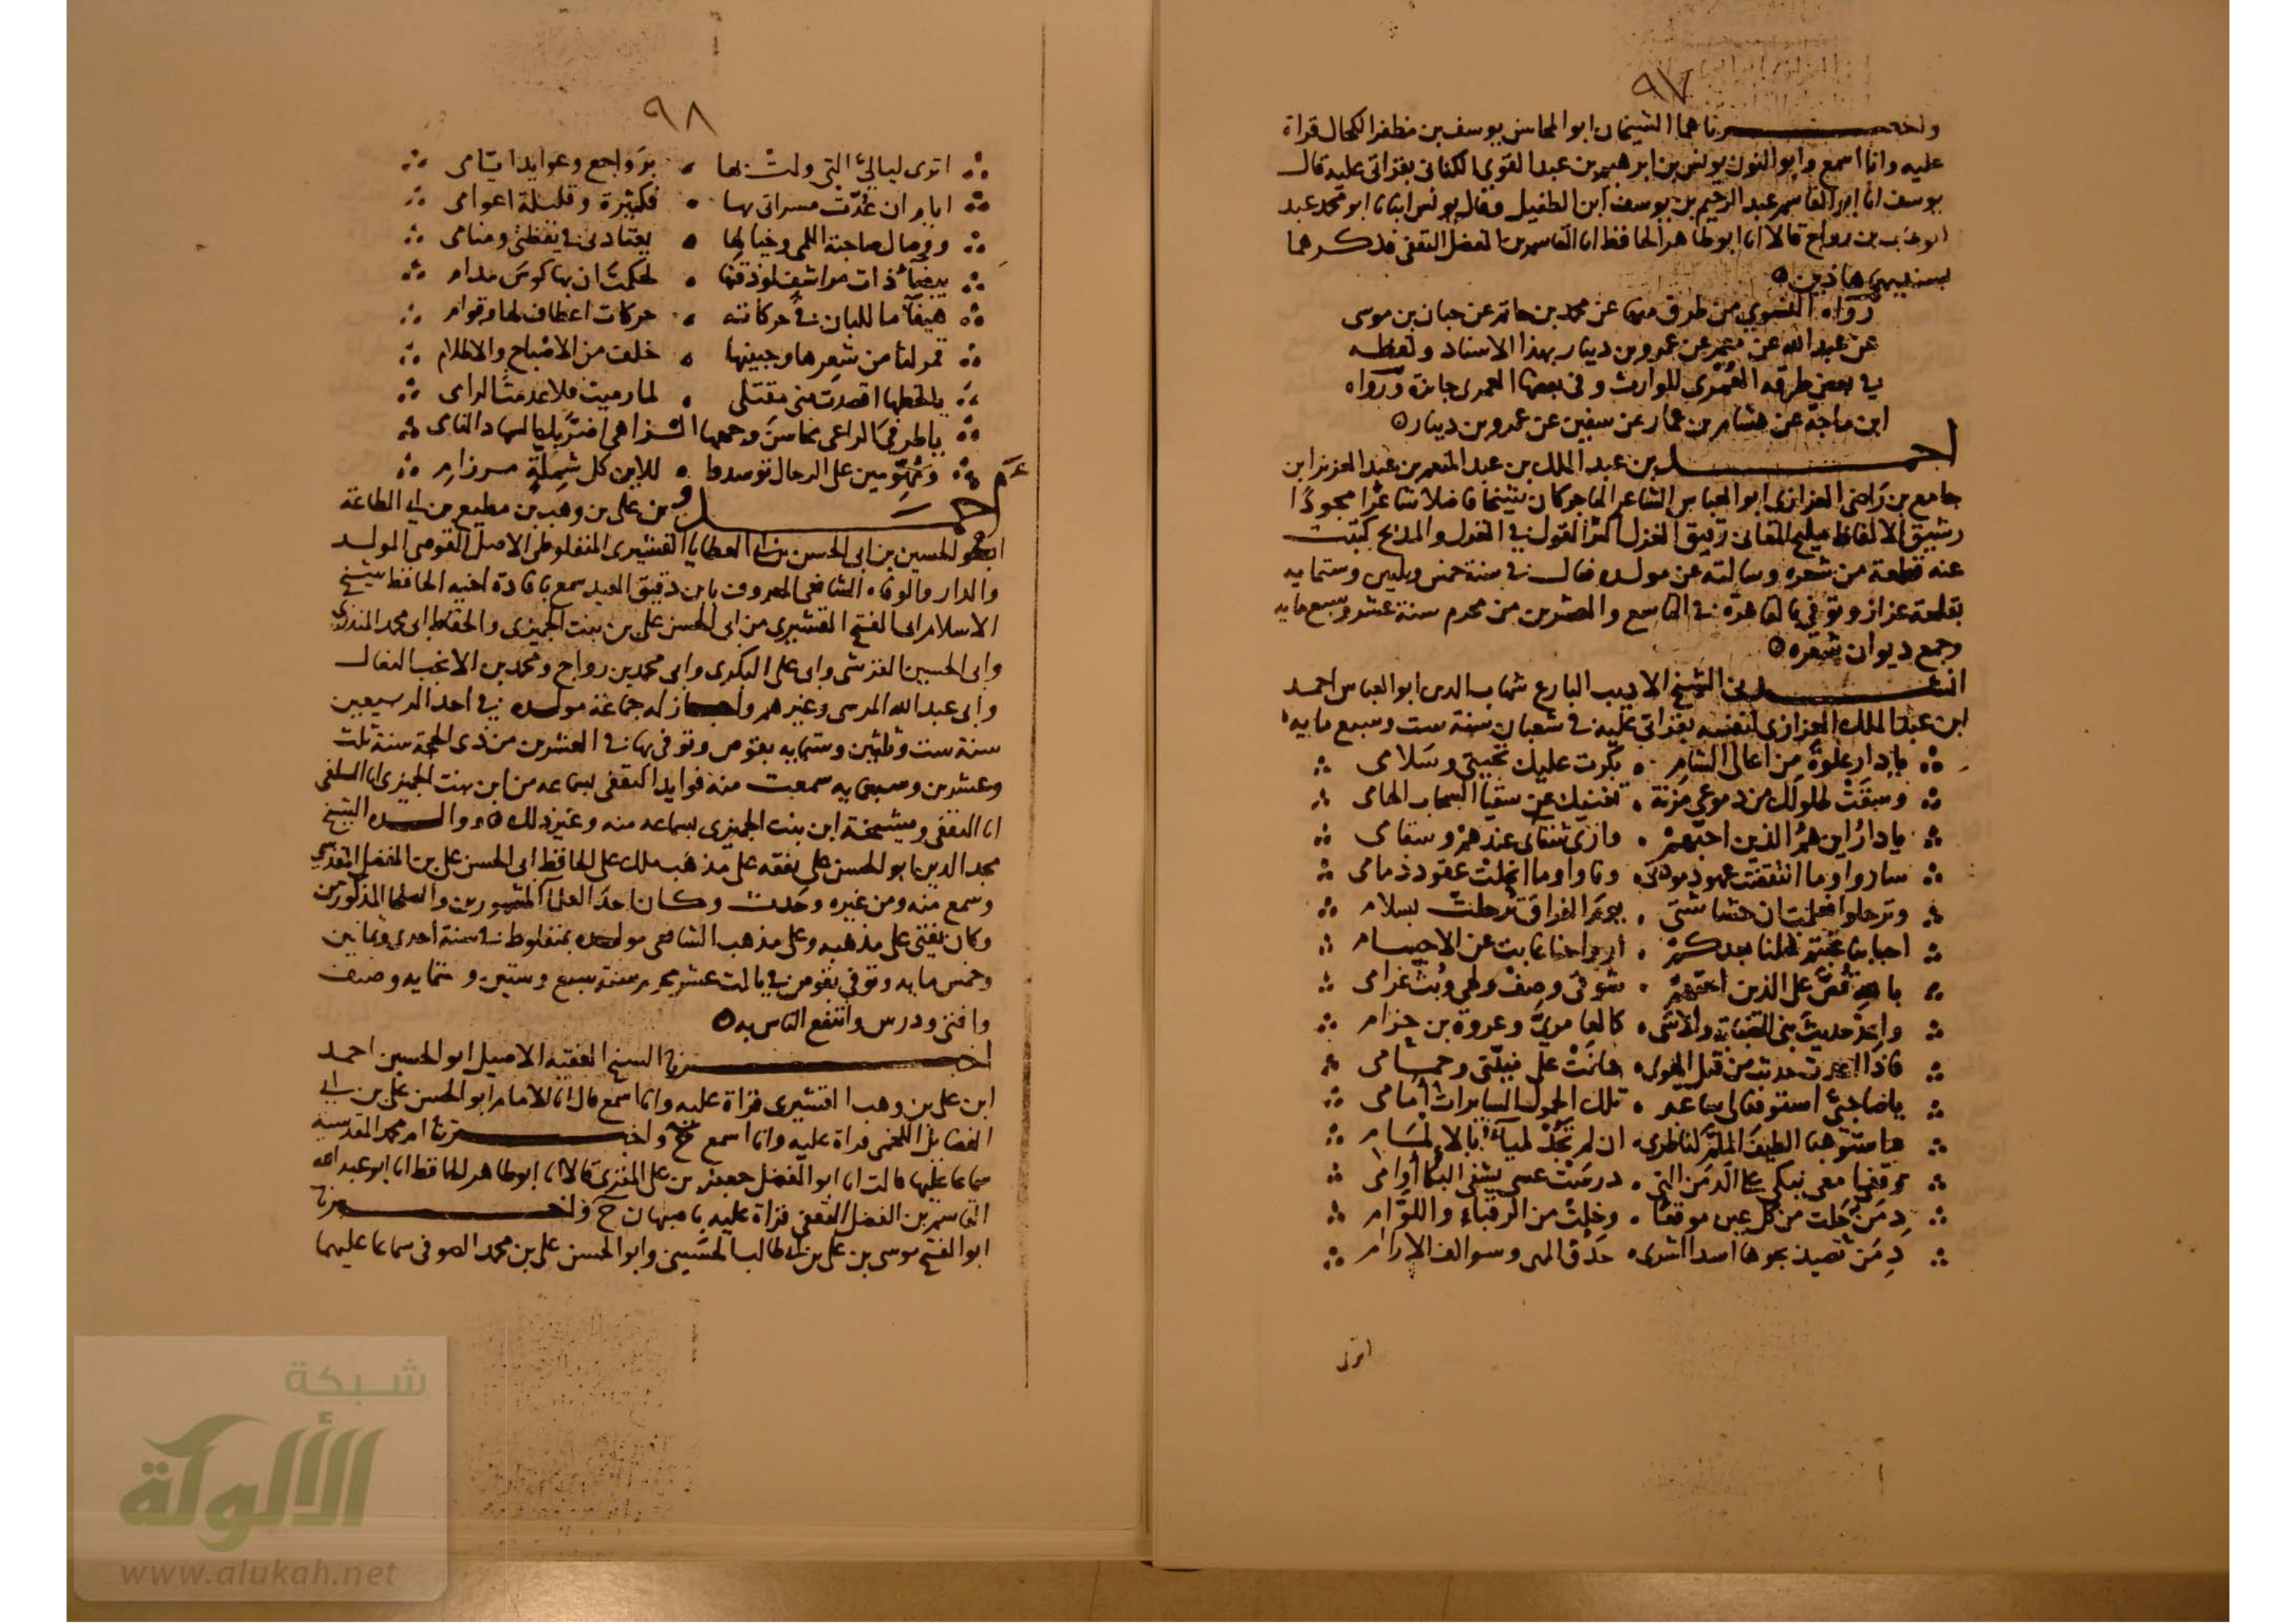 ٩٧
واخبرناهما الشيخان ابو المحاسن يوسف بن مظفر الكحال قراة
عليه وانا اسمع وابو النون يونس بن ابرهيم بن عبد القوي الكناني بقراتي عليه قال
يوسف انا ابو القاسم عبد الرحيم بن يوسف ابن الطفيل وقال يونس انبانا ابو محمد عبد
الوهاب بن رواج قالا انا ابو طاهر الحافظ انا القاسم بن الفضل الثقفي فذكرهما
بسنديهما هاذين
رواه النسوي من طرق منها عن محمد بن حاتم عن حبان بن موسى
عن عبد الله عن معمر عن عمرو بن دينار بهذا الاسناد ولفظه
في بعض طرقه العمرى للوارث وفي بعضها العمرى جايزة ورواه
ابن ماجة عن هشام بن عمار عن سفين عن عمرو بن دينار
احمد بن عبد الملك بن عبد المنعم بن عبد العزيز ابن
جامع بن راضي العزازي ابو العباس الشاعر التاجر كان شيخا فاضلا شاعرا مجودا
رشيق الالفاظ مليح المعاني رقيق الغزل اكثر القول في الغزل والمديح كتبت
عنه قطعة من شعره وسالته عن مولده فقال في سنة خمس وثلثين وستمايه
بقلعة عزاز وتوفي بالقاهرة في التاسع والعشرين من محرم سنة عشر وسبع مايه
وجمع ديوان شعره
انشدني الشيخ الاديب البارع شهاب الدين ابو العباس احمد
ابن عبد الملك العزازي لنفسه بقراتي عليه في شعبان سنة ست وسبع مايه
يا دار علوة من اعالي الشام بكرت عليك تحيتي وسلامي
وسقت طلولك من دموعي مزنة تغنيك عن سقيا السحاب الهامي
يا دار اين هم الذين احبهم وارى شفاي عندهم وسقامي
ساروا وما انتقضت عهود مودتي وناوا وما انحلت عقود ذمامي
وترحلوا فعلمت ان حشاشتي يوم الفراق ترحلت بسلام
احبابنا غبتم فلنا بعدكم ارواحنا غابت عن الاجسام
بالله قص على الذين احبهم شوقي وصف ولهي وبث غرامي
واعد حديث بني الصبابة والاسى كالعامري وعروة بن حزام
يا صاحبي استوقفا لي ساعة تلك الحمول السايرات امامي
وقفا معي نبكي على الدمن التي درست عسى يشفي البكا اوامي
دمن خلت من كل عين موقفا وخلت من الرقباء واللوام
دمن تصيد بجوها اسد الشرى حدق المهى وسوالف الارام
اترى
٩٨
اترى ليالي التي ولت بها برواجع وعوايد ايامي
ايام ان عدت مسراتي بها فكثيرة وقليلة اعوامي
ووصال صاحبة اللمى وخيالها يعتادني في يقظتي ومنامي
بيضآ ذات مراشف لو ذقتها لحكمت ان بها كوس مدام
هيفآ ما للبان في حركاته حركات اعطاف لها وقوام
قمر لنا من شعرها وجبينها خلف من الاصباح والاظلام
يا لحظها اقصدت مني مقتلي لما رميت فلا عدمت الرامي
يا طرفي الراعي محاسن وجهها
ومهومين على الرحال توسدوا للاين كل شملة مرزام
احمد بن علي بن وهب بن مطيع بن ابي الطاعة
ابو الحسين بن ابي الحسن بن ابي العطايا القشيري المنفلوطي الاصل القوصي المولد
والدار والوفاه الشافعي المعروف بابن دقيق العيد سمع بافادة اخيه الحافظ شيخ
الاسلام ابي الفتح القشيري من ابي الحسن علي بن بنت الجميزي والحفاظ ابي محمد المنذري
وابي الحسين القرشي وابي علي البكري وابي محمد بن رواج ومحمد بن الانجب النعال
وابي عبد الله المرسي وغيرهم واجاز له جماعة مولده في احد الربيعين
سنة ست وثلثين وستمايه بقوص وتوفي بها في العشرين من ذي الحجة سنة ثلث
وعشرين وسبعمايه سمعت منه فوايد الثقفي بسماعه من ابن بنت الجميزي انا السلفي
انا الثقفي ومشيخة ابن بنت الجميزي بسماعه منه وغير ذلك ووالده الشيخ
مجد الدين ابو الحسن علي تفقه على مذهب ملك على الحافظ ابي الحسن علي بن المفضل المقدسي
وسمع منه ومن غيره وحدث وكان احد العلمآ المشهورين والصلحا المذكورين
وكان يفتي على مذهبه وعلى مذهب الشافعي مولده بمنفلوط في سنة احدى وثمانين
وخمس مايه وتوفي بقوص في ثالث عشر محرم سنة سبع وستين وستمايه وصنف
وافتى ودرس وانتفع الناس به
اخبرنا الشيخ الفقيه الاصيل ابو الحسين احمد
ابن علي بن وهب القشيري قراة عليه وانا اسمع قال انا الامام ابو الحسن علي بن ابي
الفضايل اللخمي قراة عليه وانا اسمع ح واخبرتنا ام محمد المقدسية
سماعا عليها قالت انا ابو الفضل جعفر بن علي المقري قالا انا ابو طاهر الحافظ انا ابو عبد الله
القاسم بن الفضل الثقفي قراة عليه باصبهان ح واخبرنا
ابو الفتح موسى بن علي بن ابي طالب الحسيني وابو الحسن علي بن محمد الصوفي سماعا عليهما
شبكة
الألوكة
www.alukah.net